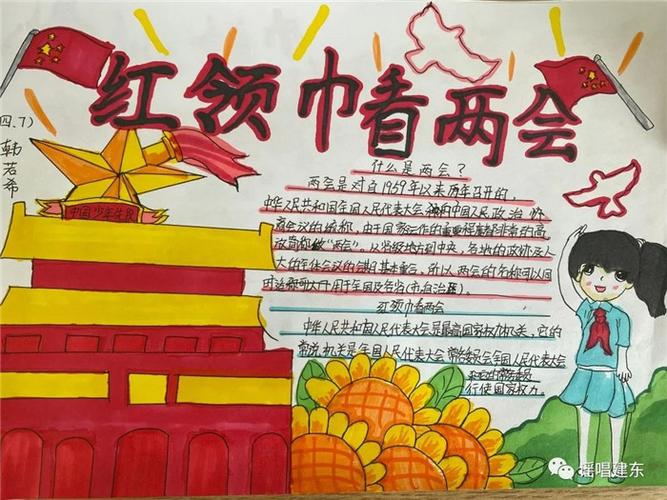 红领巾看两会
四、7)
韩若希
中国少年先队
什么是两会？
两会是对自1959年以来历年召开的，
中华人民共和国全国人民代表大会和中国人民政治协
商会议的统称，由于国家运作的重要程度都非常的高
故简称做“两会”。从省级地方到中央，各地的政协及人
大的全体会议的会期基本重合，所以两会的名称可以同
时适用于全国及各省(市、自治区)。
红领巾看两会
中华人民共和国人民代表大会是最高国家权力机关，它的
常设机关是全国人民代表大会常务委员会全国人民代表大会
行使国家权力。
摇唱建东